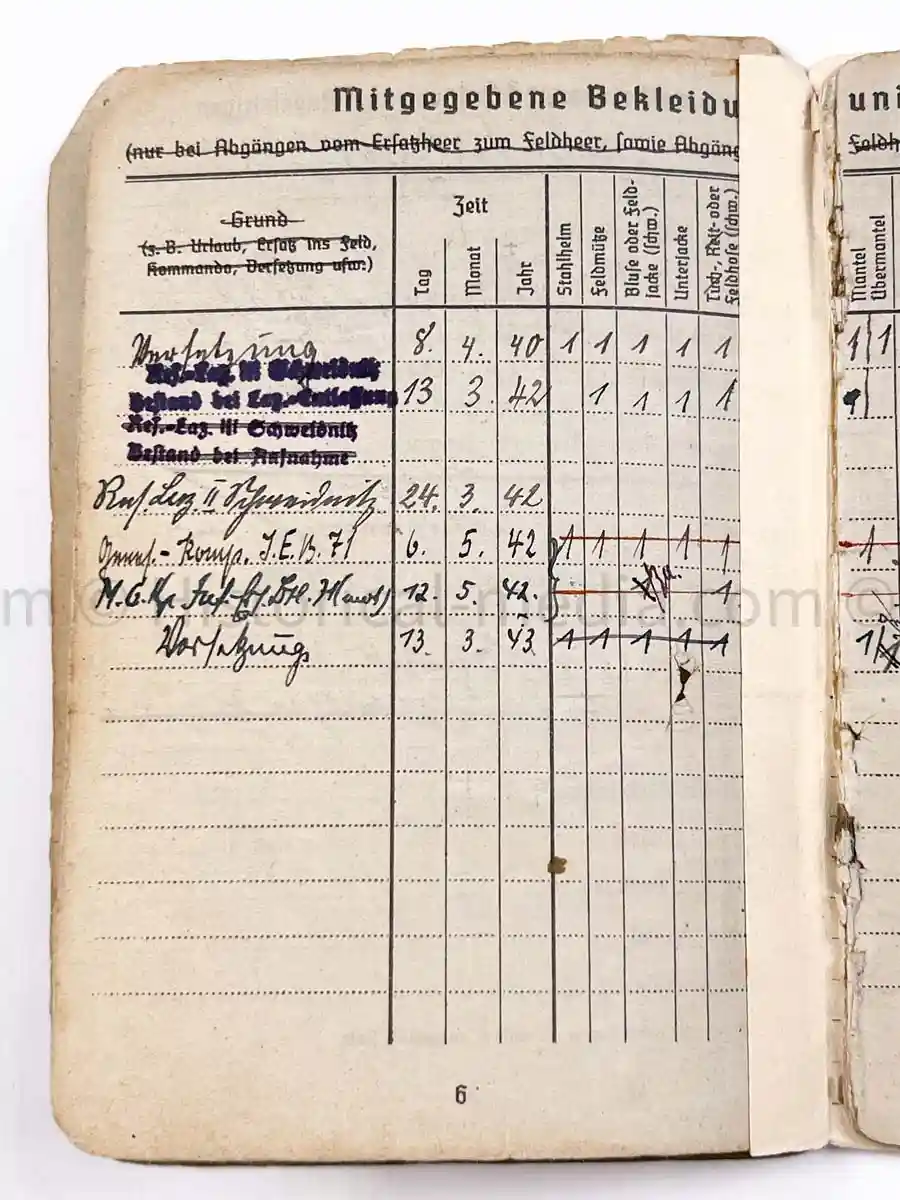 Mitgegebene Bekleidu
uni
(nur bei Abgängen vom Ersatzheer zum Feldheer, sowie Abgäng
Feldh
Grund
(z. B. Urlaub, Ersatz ins Feld,
Kommando, Versetzung usw.)
Zeit
Tag
Monat
Jahr
Stahlhelm
Feldmütze
Bluse oder Feld-
jacke (schw.)
Unterjacke
Tuch-, Reit- oder
Feldhose (schw.)
Mantel
Übermantel
Versetzung 8. 4. 40 1 1 1 1 1 1 1
Res.-Laz. III Schweidnitz
Bestand bei Laz.-Entlassung 13 3. 42 1 1 1 1
Res.-Laz. III Schweidnitz
Bestand bei Aufnahme
Res. Laz II Schweidnitz 24. 3. 42
Genes.-Komp. I.E.B. 71 6. 5. 42 1 1 1 1 1 1
M.G.Kp. 12. 5. 42. 1
Versetzung 13. 3. 43. 1 1 1 1 1 1
m© historical-media.com ©
6